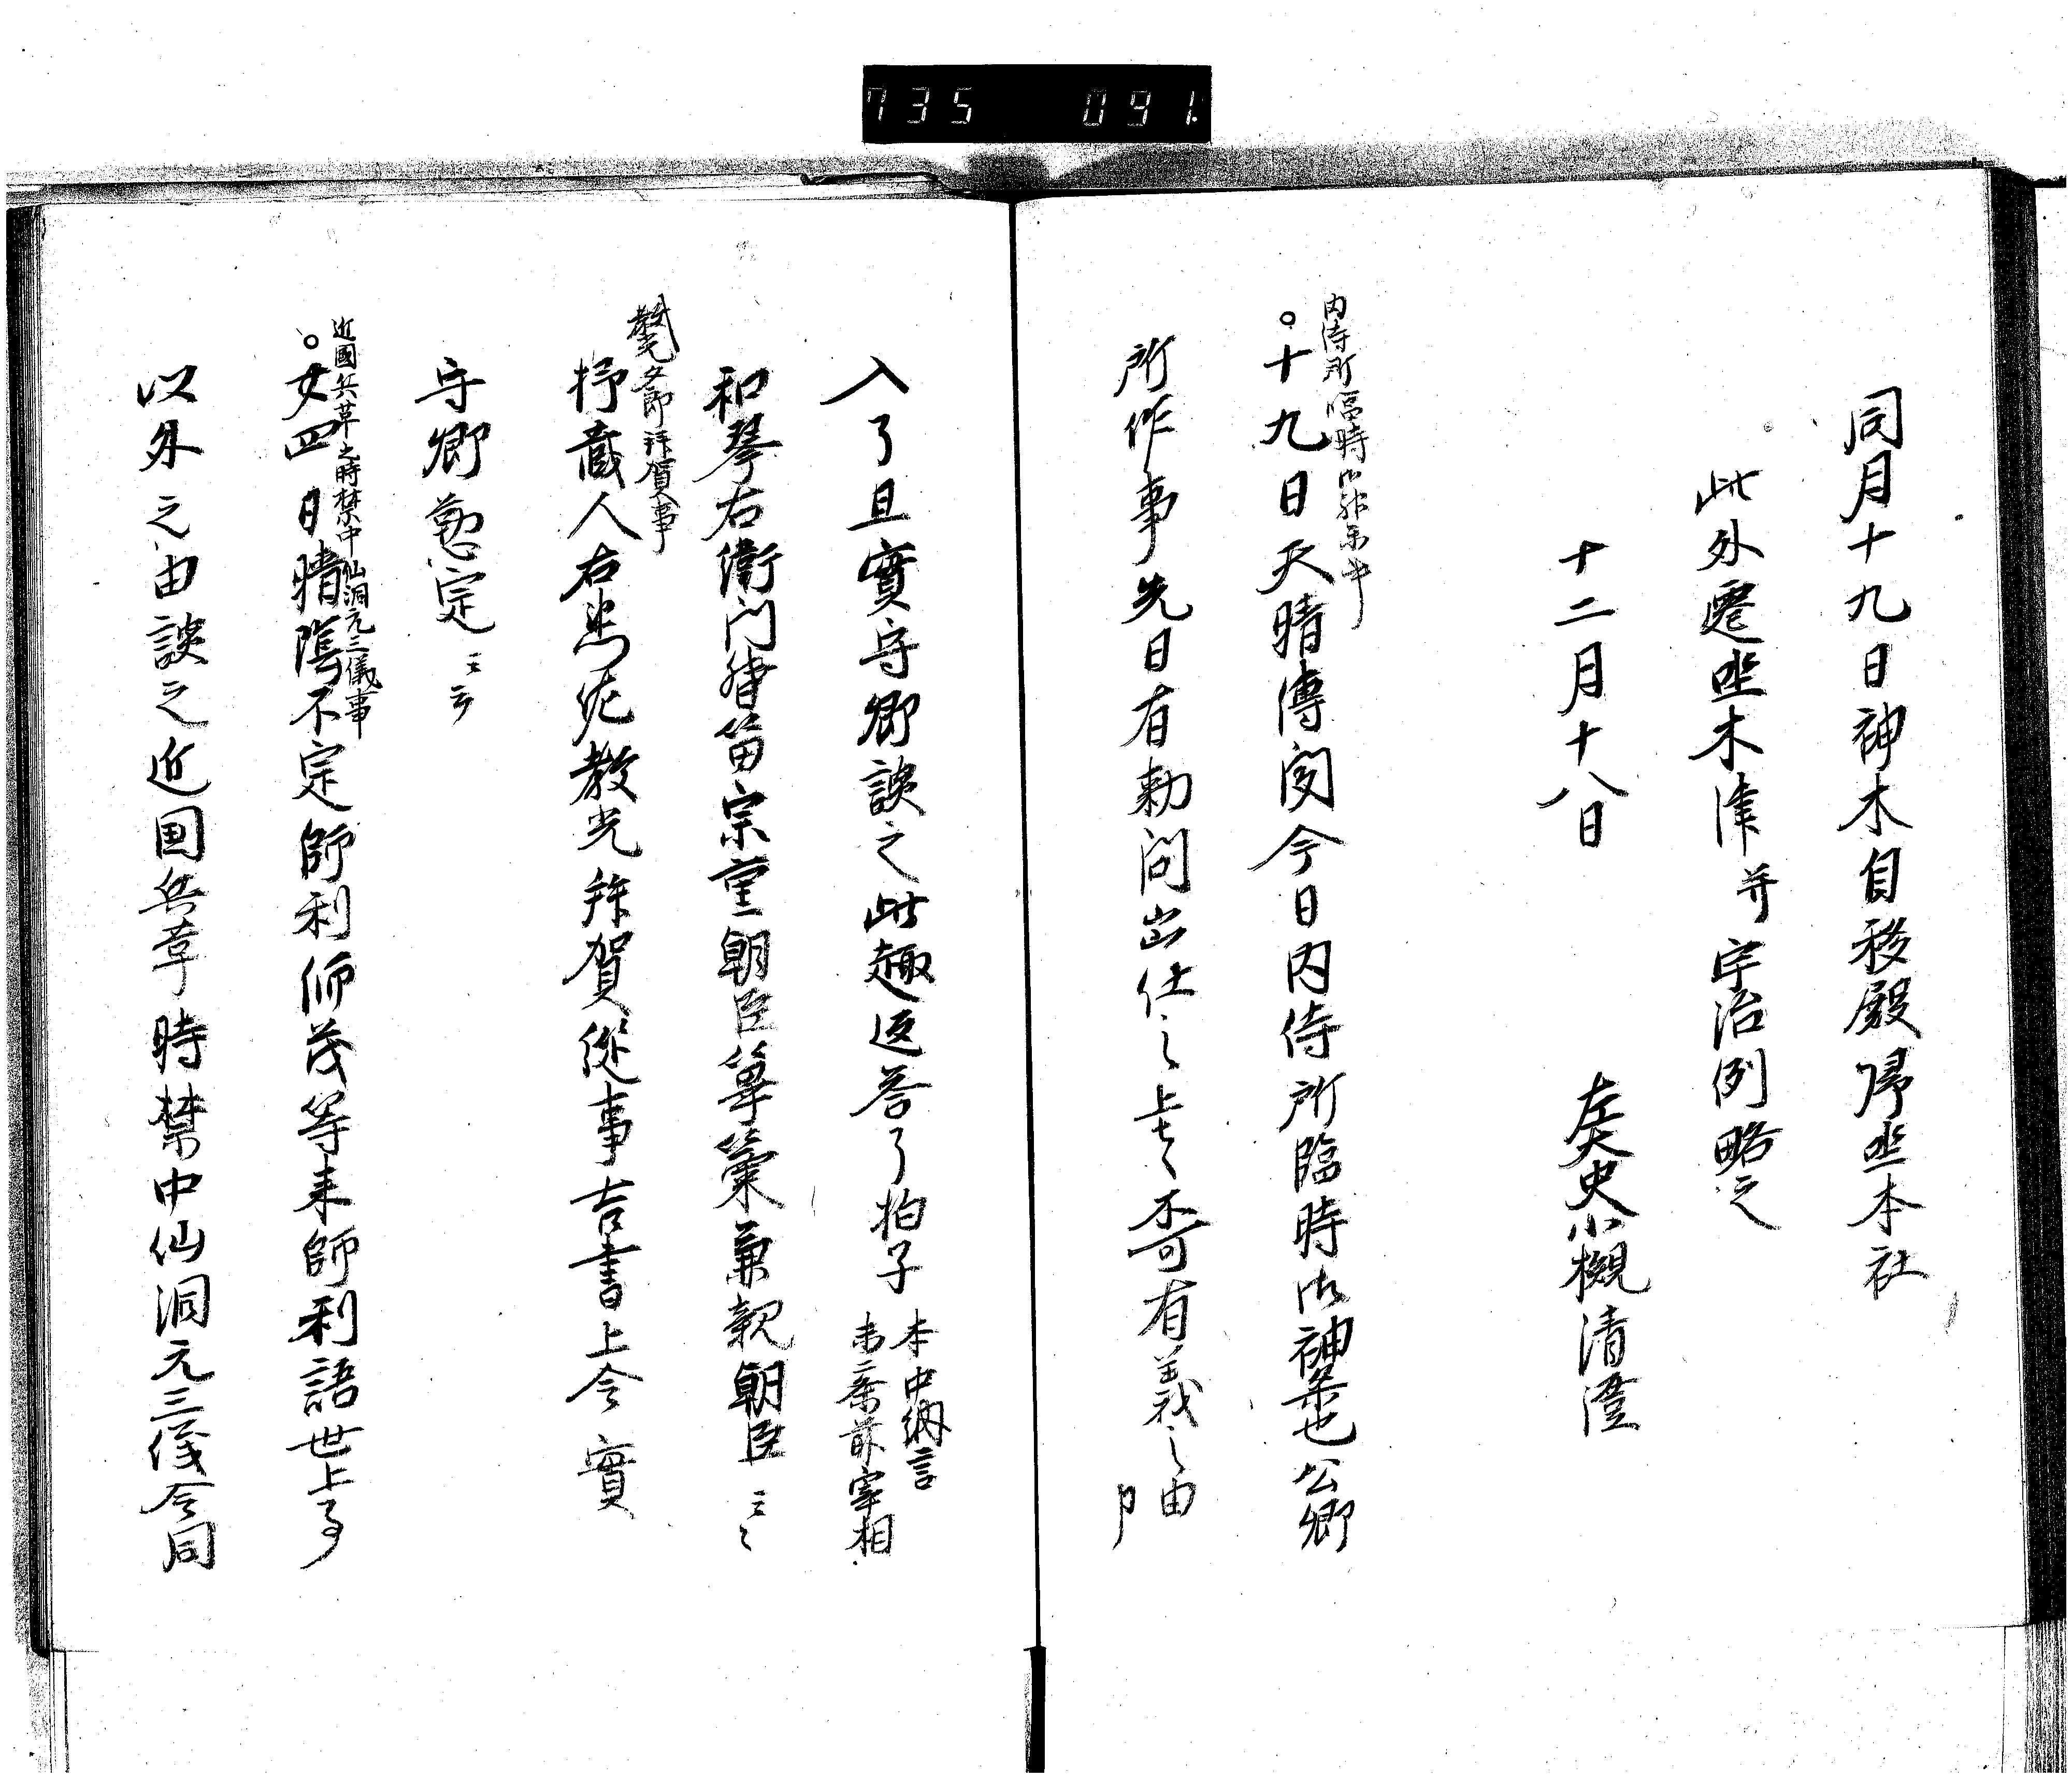 735 091
同月十九日神木自移殿帰坐本社
此外遷坐木津并宇治例略之
十二月十八日 左大史小槻清澄
内侍所臨時御神楽事
○十九日天晴傳聞今日内侍所臨時御神楽也公卿
所作事先日有勅問出仕之上者不可有義之由
入了且實守卿談之此趣返答了拍子 本中納言 末二条前宰相
和琴右衛門督笛宗重朝臣篳篥兼親朝臣云々
教光 拝賀事
抑蔵人右兵佐教光拝賀從事吉書上令實
守卿懃定云々
近國兵革之時禁中仙洞元三儀事
○廿四日晴陰不定師利師茂等来師利語世上事
以外之由談之近国兵革時禁中仙洞元三儀令同